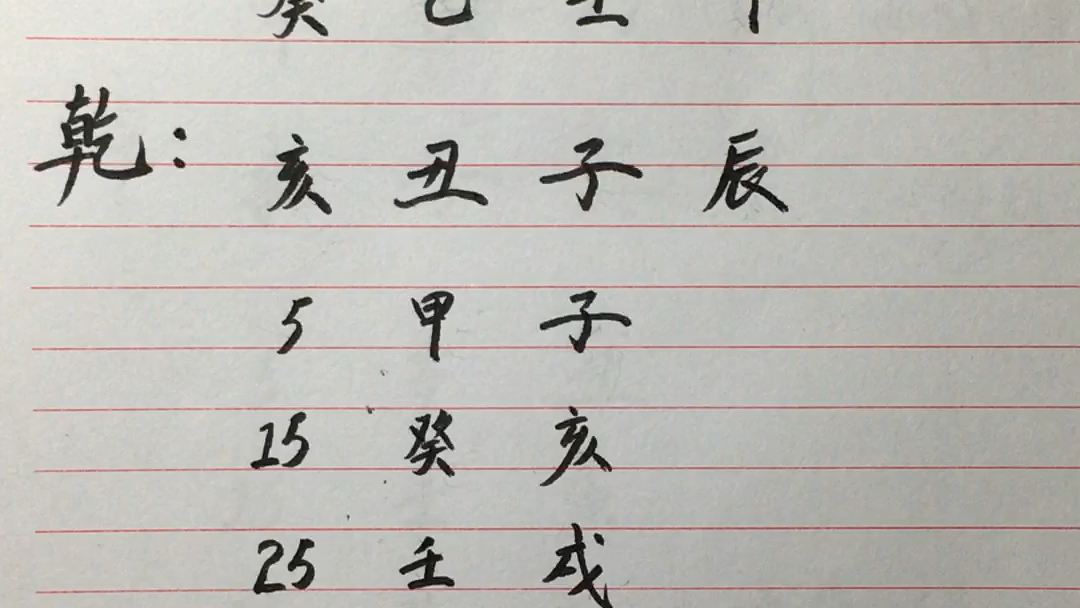 癸 乙 壬
乾： 亥 丑 子 辰
5 甲 子
15 癸 亥
25 壬 戌